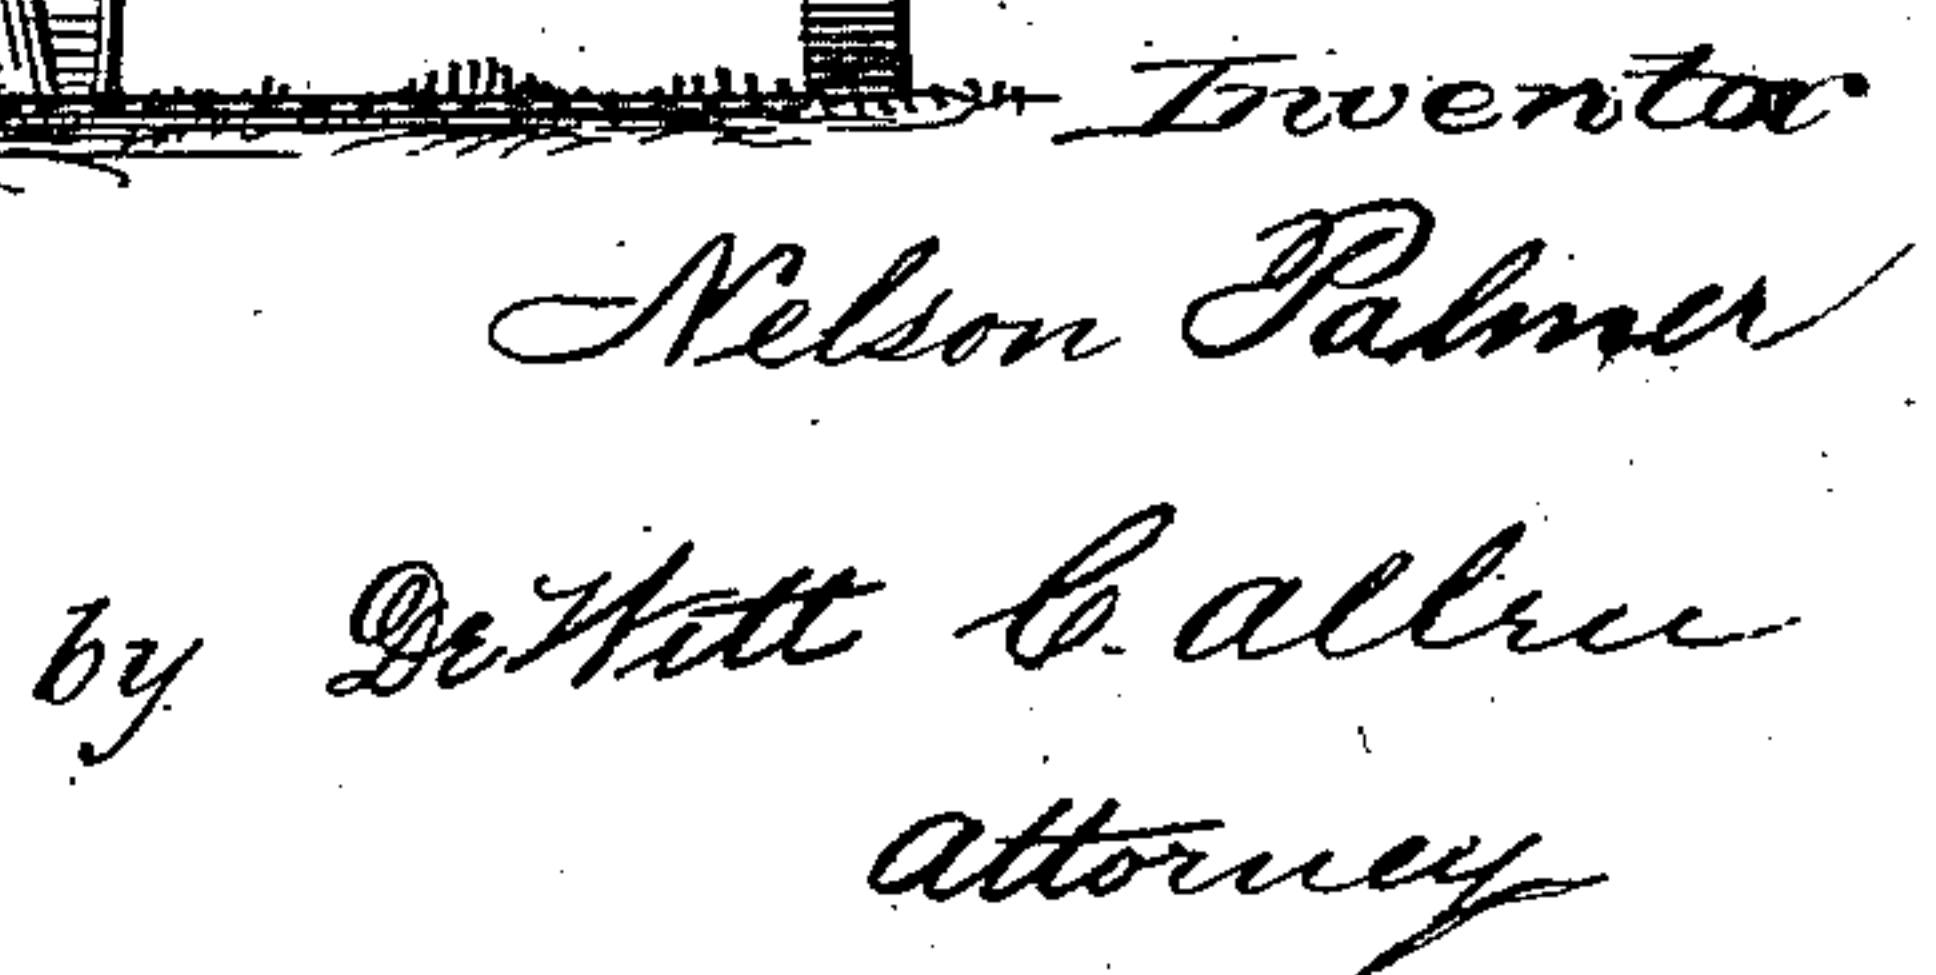 Inventor
Nelson Palmer
by DeWitt C. Allen
Attorney